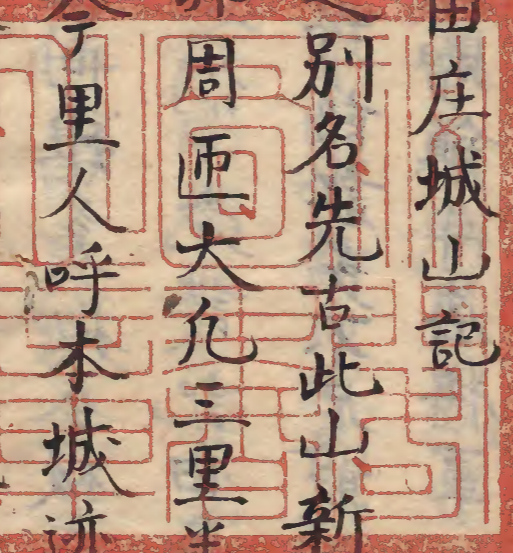 田庄城山記
別名先古此山新
周匝大凡三里半
亍里人呼本城迹